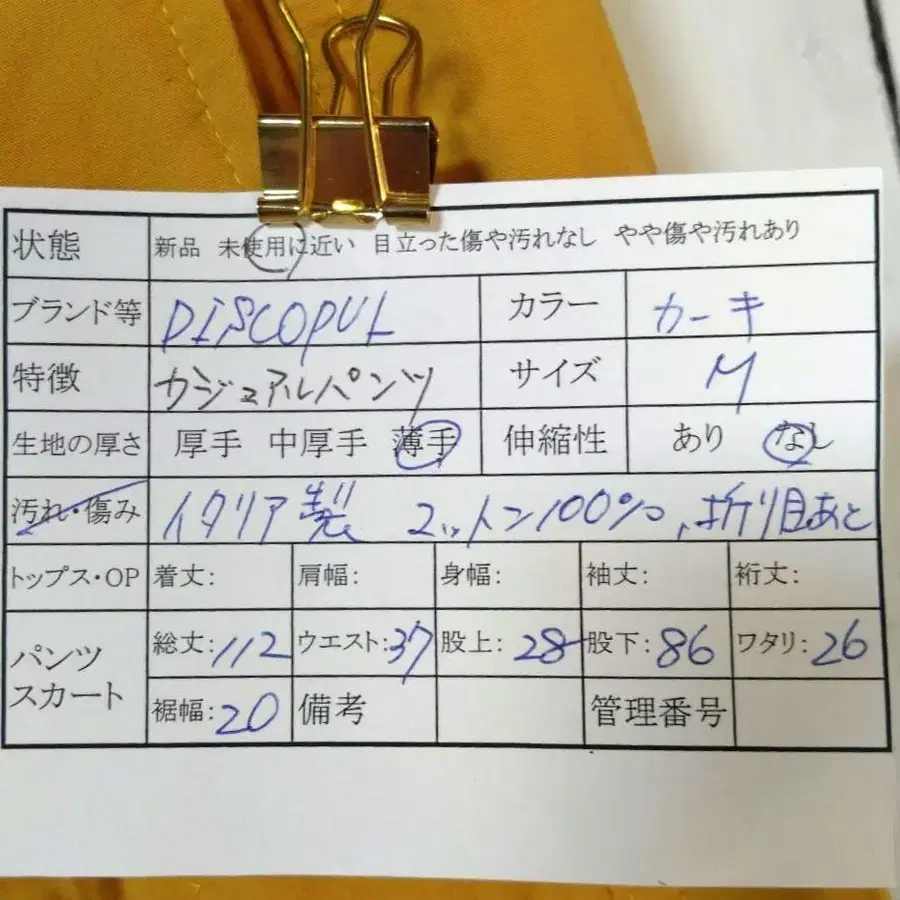 状態 新品 未使用に近い 目立った傷や汚れなし やや傷や汚れあり
ブランド等 DISCOPUL カラー カーキ
特徴 カジュアルパンツ サイズ M
生地の厚さ 厚手 中厚手 薄手 伸縮性 あり なし
汚れ・傷み イタリア製 コットン100%、折り目あと
トップス・OP 着丈: 肩幅: 身幅: 袖丈: 裄丈:
パンツ スカート 総丈:112 ウエスト:37 股上:28 股下:86 ワタリ:26
裾幅:20 備考 管理番号